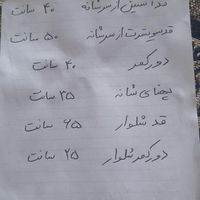 قد آستین از سرشانه ۴۰ سانت
قد سویشرت از سرشانه ۵۰ سانت
دور کمر ۴۰ سانت
پهنای شانه ۳۵ سانت
قد شلوار ۶۵ سانت
دور کمر شلوار ۲۵ سانت